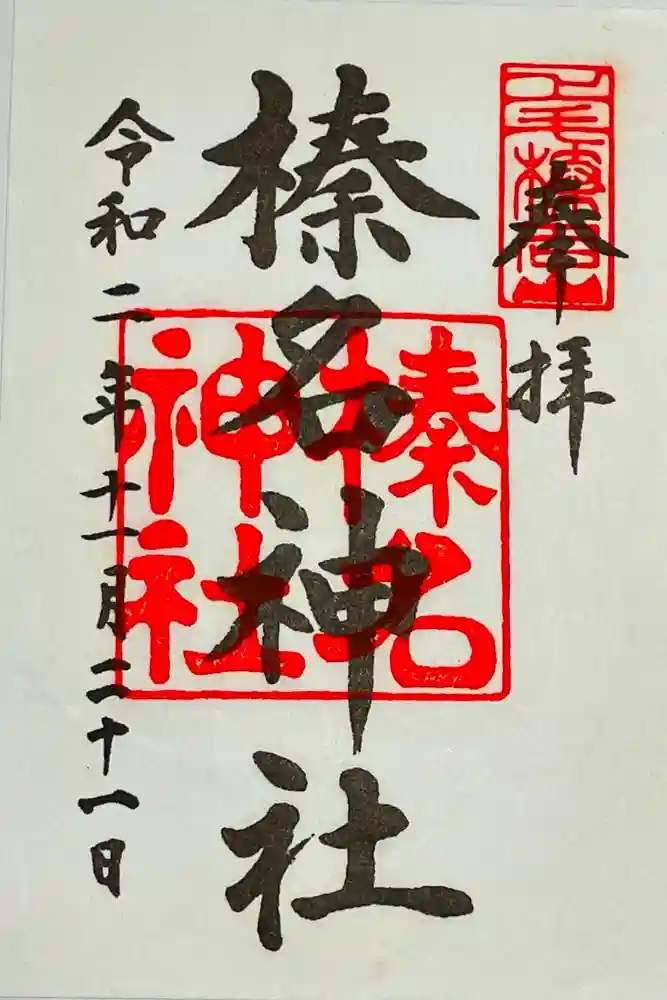 奉拝
榛名神社
榛名
神社
令和二年十一月二十一日